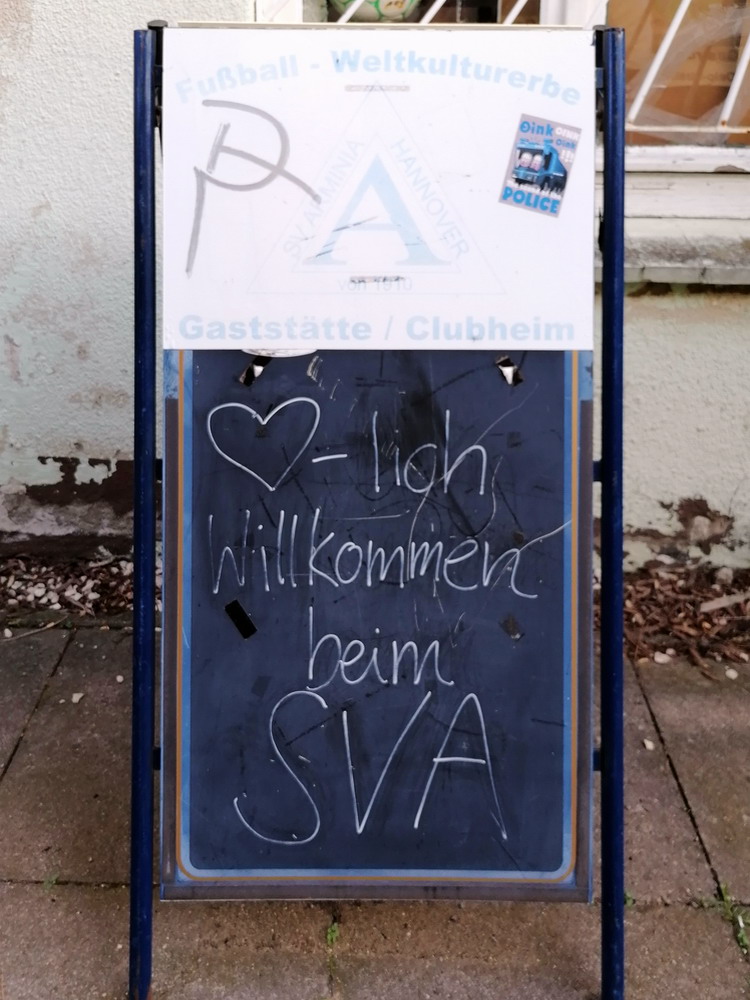 Fußball - Weltkulturerbe
SV ARMINIA HANNOVER
A
von 1910
Oink OINK
Oink !!!
POLICE
Gaststätte / Clubheim
♡-lich
Willkommen
beim
SVA